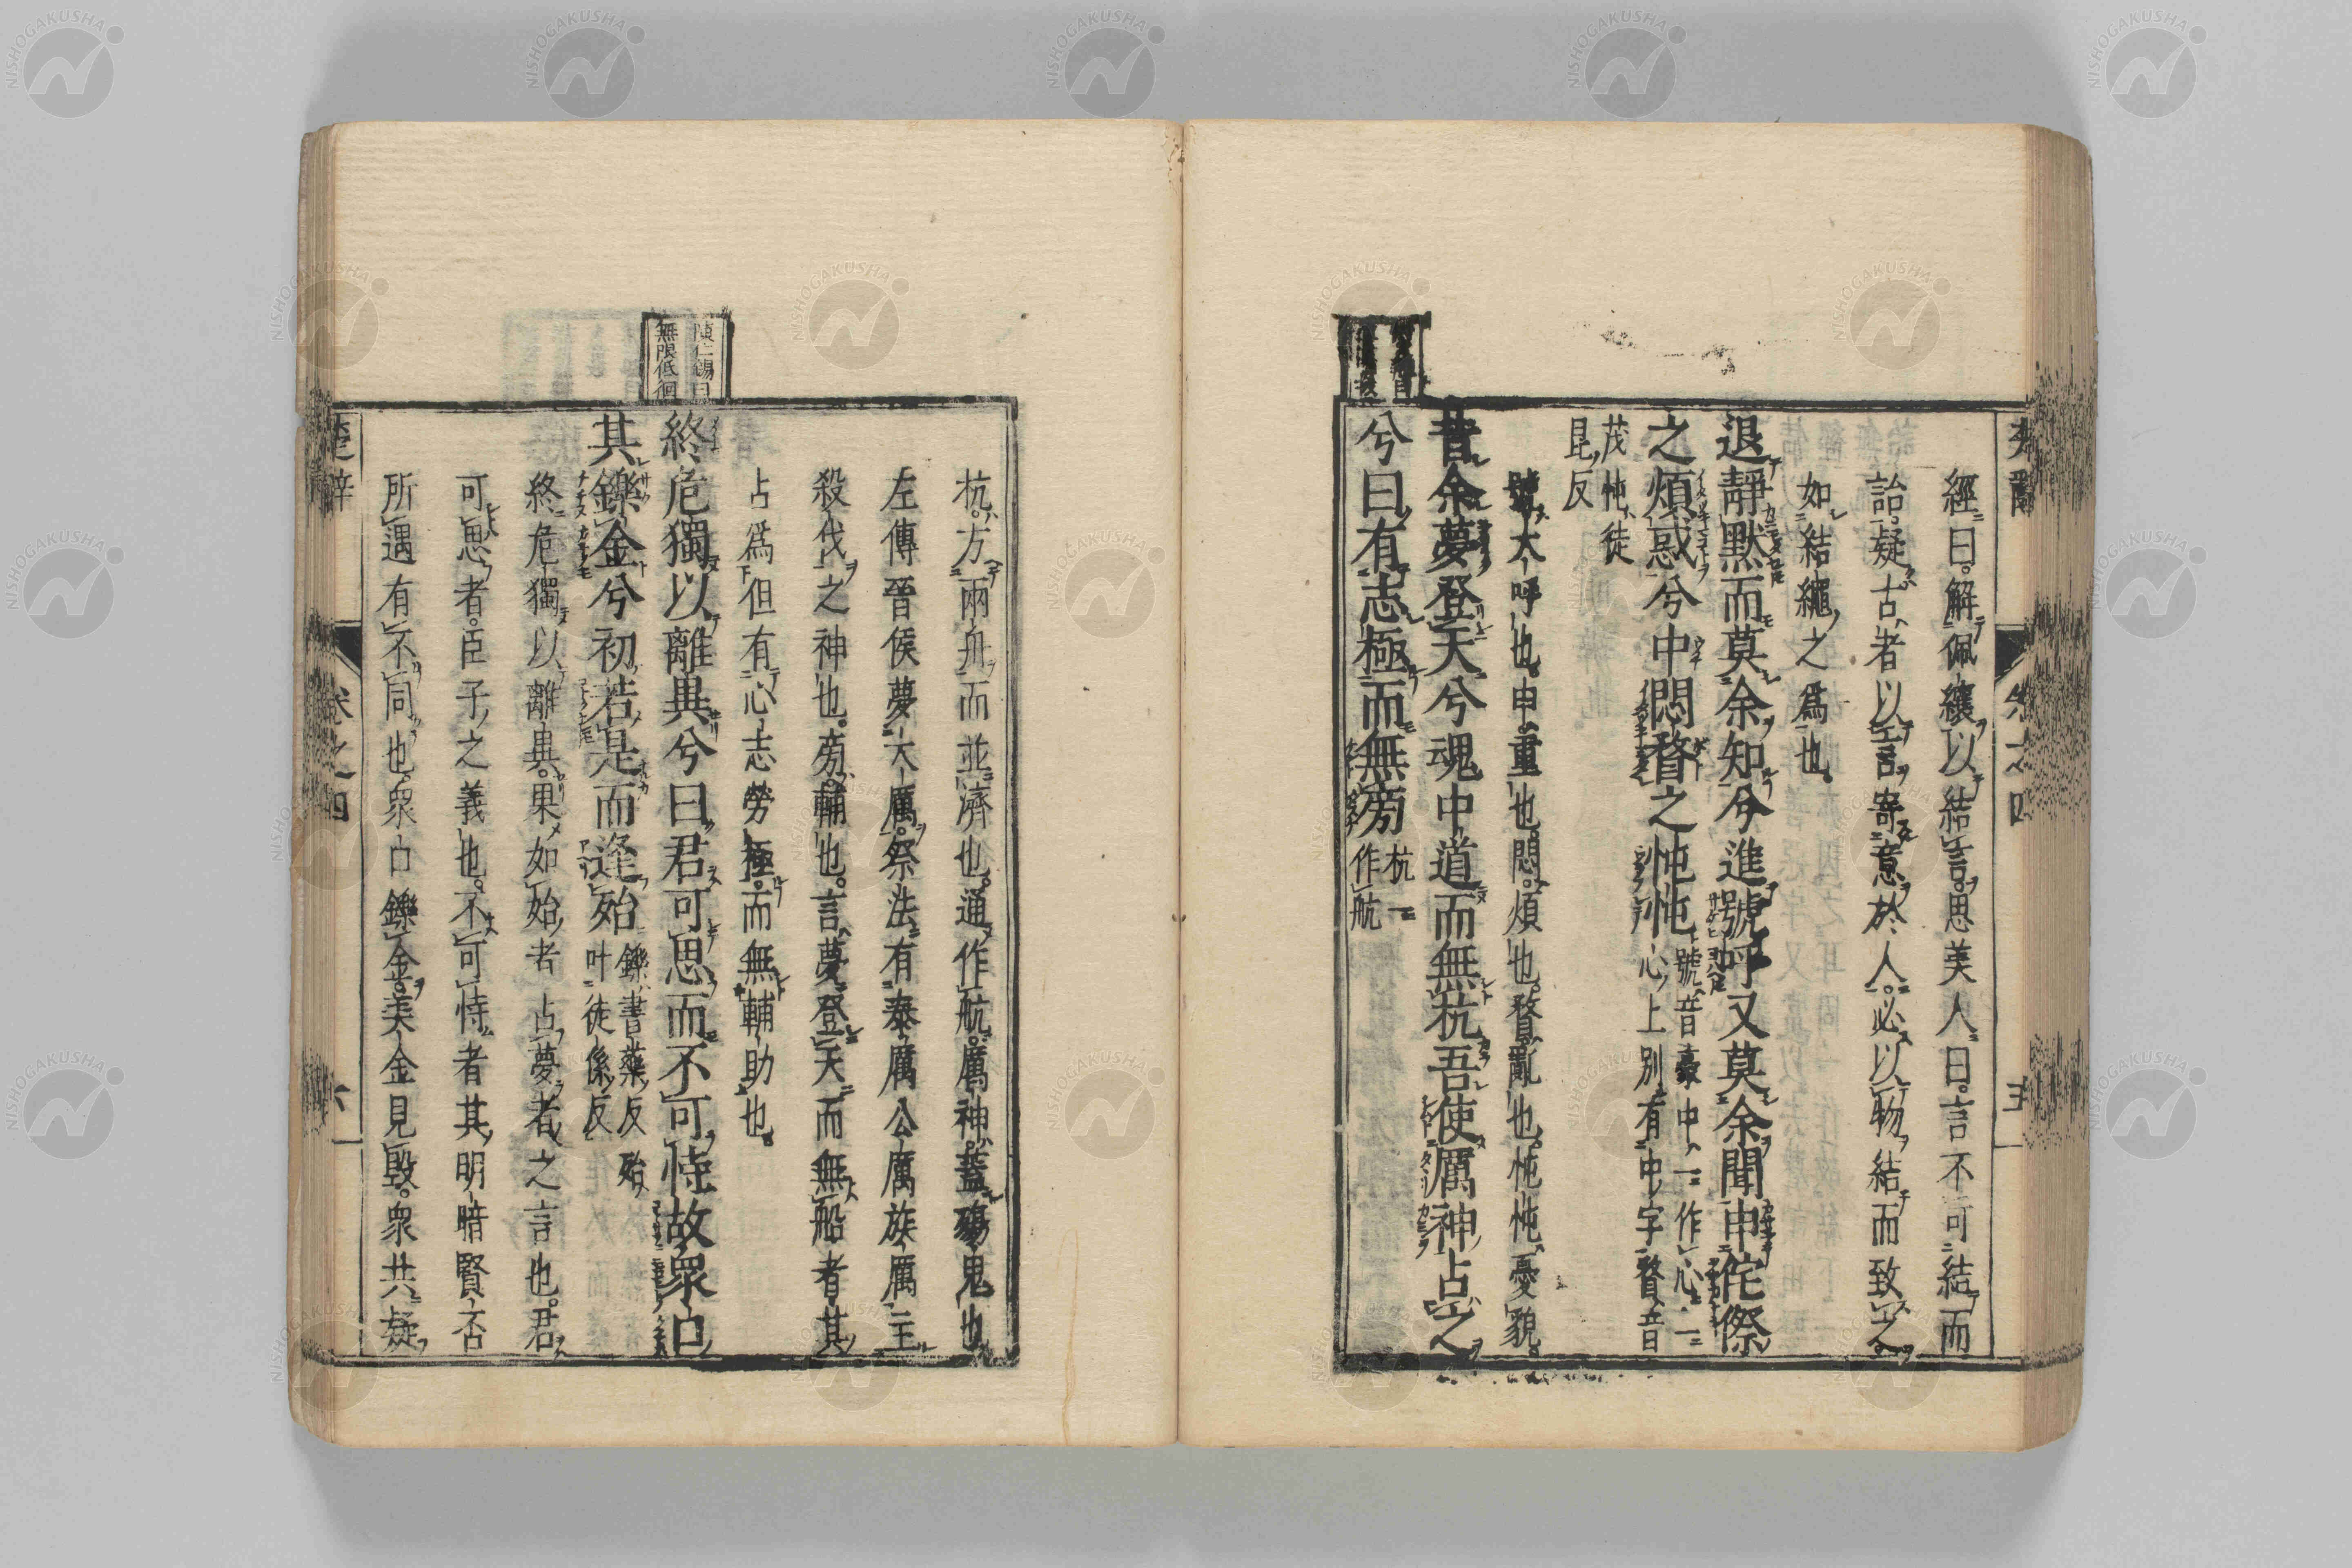 經曰。解佩纕以結言。思美人曰。言不可結而
詒。疑古者以言寄意於人。必以物結而致之。
如結繩之爲也。
退靜默而莫余知兮進號呼又莫余聞申侘傺
之煩惑兮中悶瞀之忳忳 號音豪中一作心一
心上別有中字瞀音
茂忳徒
昆反
號大呼也。申重也。悶。煩也。瞀亂也。忳忳憂貌。
昔余夢登天兮魂中道而無杭吾使厲神占之
兮曰有志極而無旁 杭一
作航
陳仁錫曰
無限低徊
杭。方兩舟而並濟也。通作航。厲神。蓋殤鬼也
左傳晉侯夢大厲。祭法有泰厲公厲族厲主
殺伐之神也。旁。輔也。言夢登天而無船者其
占爲但有心志勞極。而無輔助也。
終危獨以離異兮曰君可思而不可恃故衆口
其鑠金兮初若是而逢殆 鑠書藥反殆
叶徒係反
終危獨以離異。果如始者占夢者之言也。君
可思者。臣子之義也。不可恃者其明暗賢否
所遇有不同也。衆口鑠金。美金見毀。衆共疑
楚辭 卷之四 六
NISHOGAKUSHA